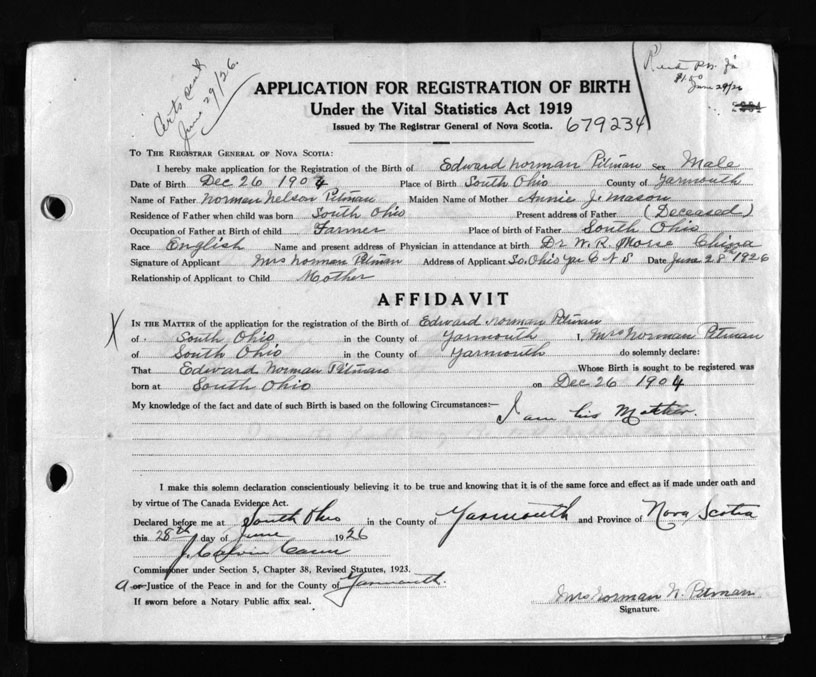 Certs sent
June 29/26.
Recd P.N. 
$1.50
June 29/26
APPLICATION FOR REGISTRATION OF BIRTH
Under the Vital Statistics Act 1919
Issued by The Registrar General of Nova Scotia. 679234
TO THE REGISTRAR GENERAL OF NOVA SCOTIA:
I hereby make application for the Registration of the Birth of Edward Norman Pitman Sex Male
Date of Birth Dec 26 1904 Place of Birth South Ohio County of Yarmouth
Name of Father Norman Nelson Pitman Maiden Name of Mother Annie J. Mason
Residence of Father when child was born South Ohio Present address of Father (Deceased)
Occupation of Father at Birth of child Farmer Place of birth of Father South Ohio
Race English Name and present address of Physician in attendance at birth Dr W. R. Morse China
Signature of Applicant Mrs Norman Pitman Address of Applicant So. Ohio Yar C N S Date June 28th 1926
Relationship of Applicant to Child Mother
AFFIDAVIT
X
IN THE MATTER of the application for the registration of the Birth of Edward Norman Pitman
of South Ohio in the County of Yarmouth I, Mrs Norman Pitman
of South Ohio in the County of Yarmouth do solemnly declare:
That Edward Norman Pitman Whose Birth is sought to be registered was
born at South Ohio on Dec 26 1904
My knowledge of the fact and date of such Birth is based on the following Circumstances:—
I am his Mother.
I make this solemn declaration conscientiously believing it to be true and knowing that it is of the same force and effect as if made under oath and
by virtue of The Canada Evidence Act.
Declared before me at South Ohio in the County of Yarmouth and Province of Nova Scotia
this 28th day of June 1926
J. Calvin Cann
Commissioner under Section 5, Chapter 38, Revised Statutes, 1923.
a or Justice of the Peace in and for the County of Yarmouth.
If sworn before a Notary Public affix seal.
Mrs Norman N. Pitman
Signature.